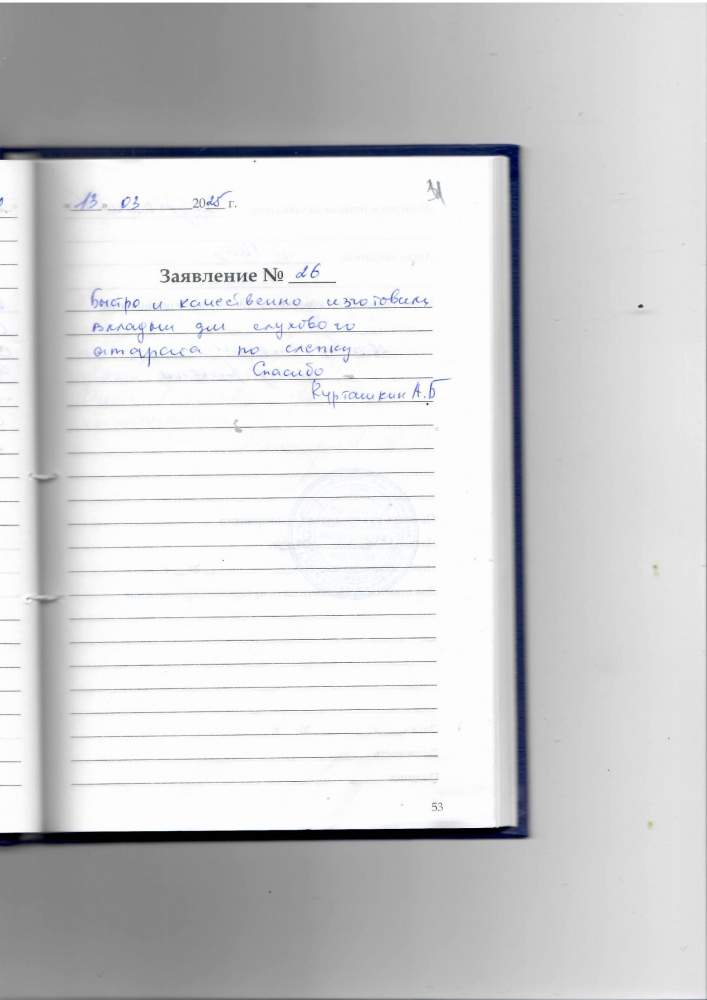 «13» 03 2025 г.
31
Заявление № 26
Быстро и качественно изготовили
вкладыш для слухового
аппарата по слепку
Спасибо
Курташкин А.Б
53